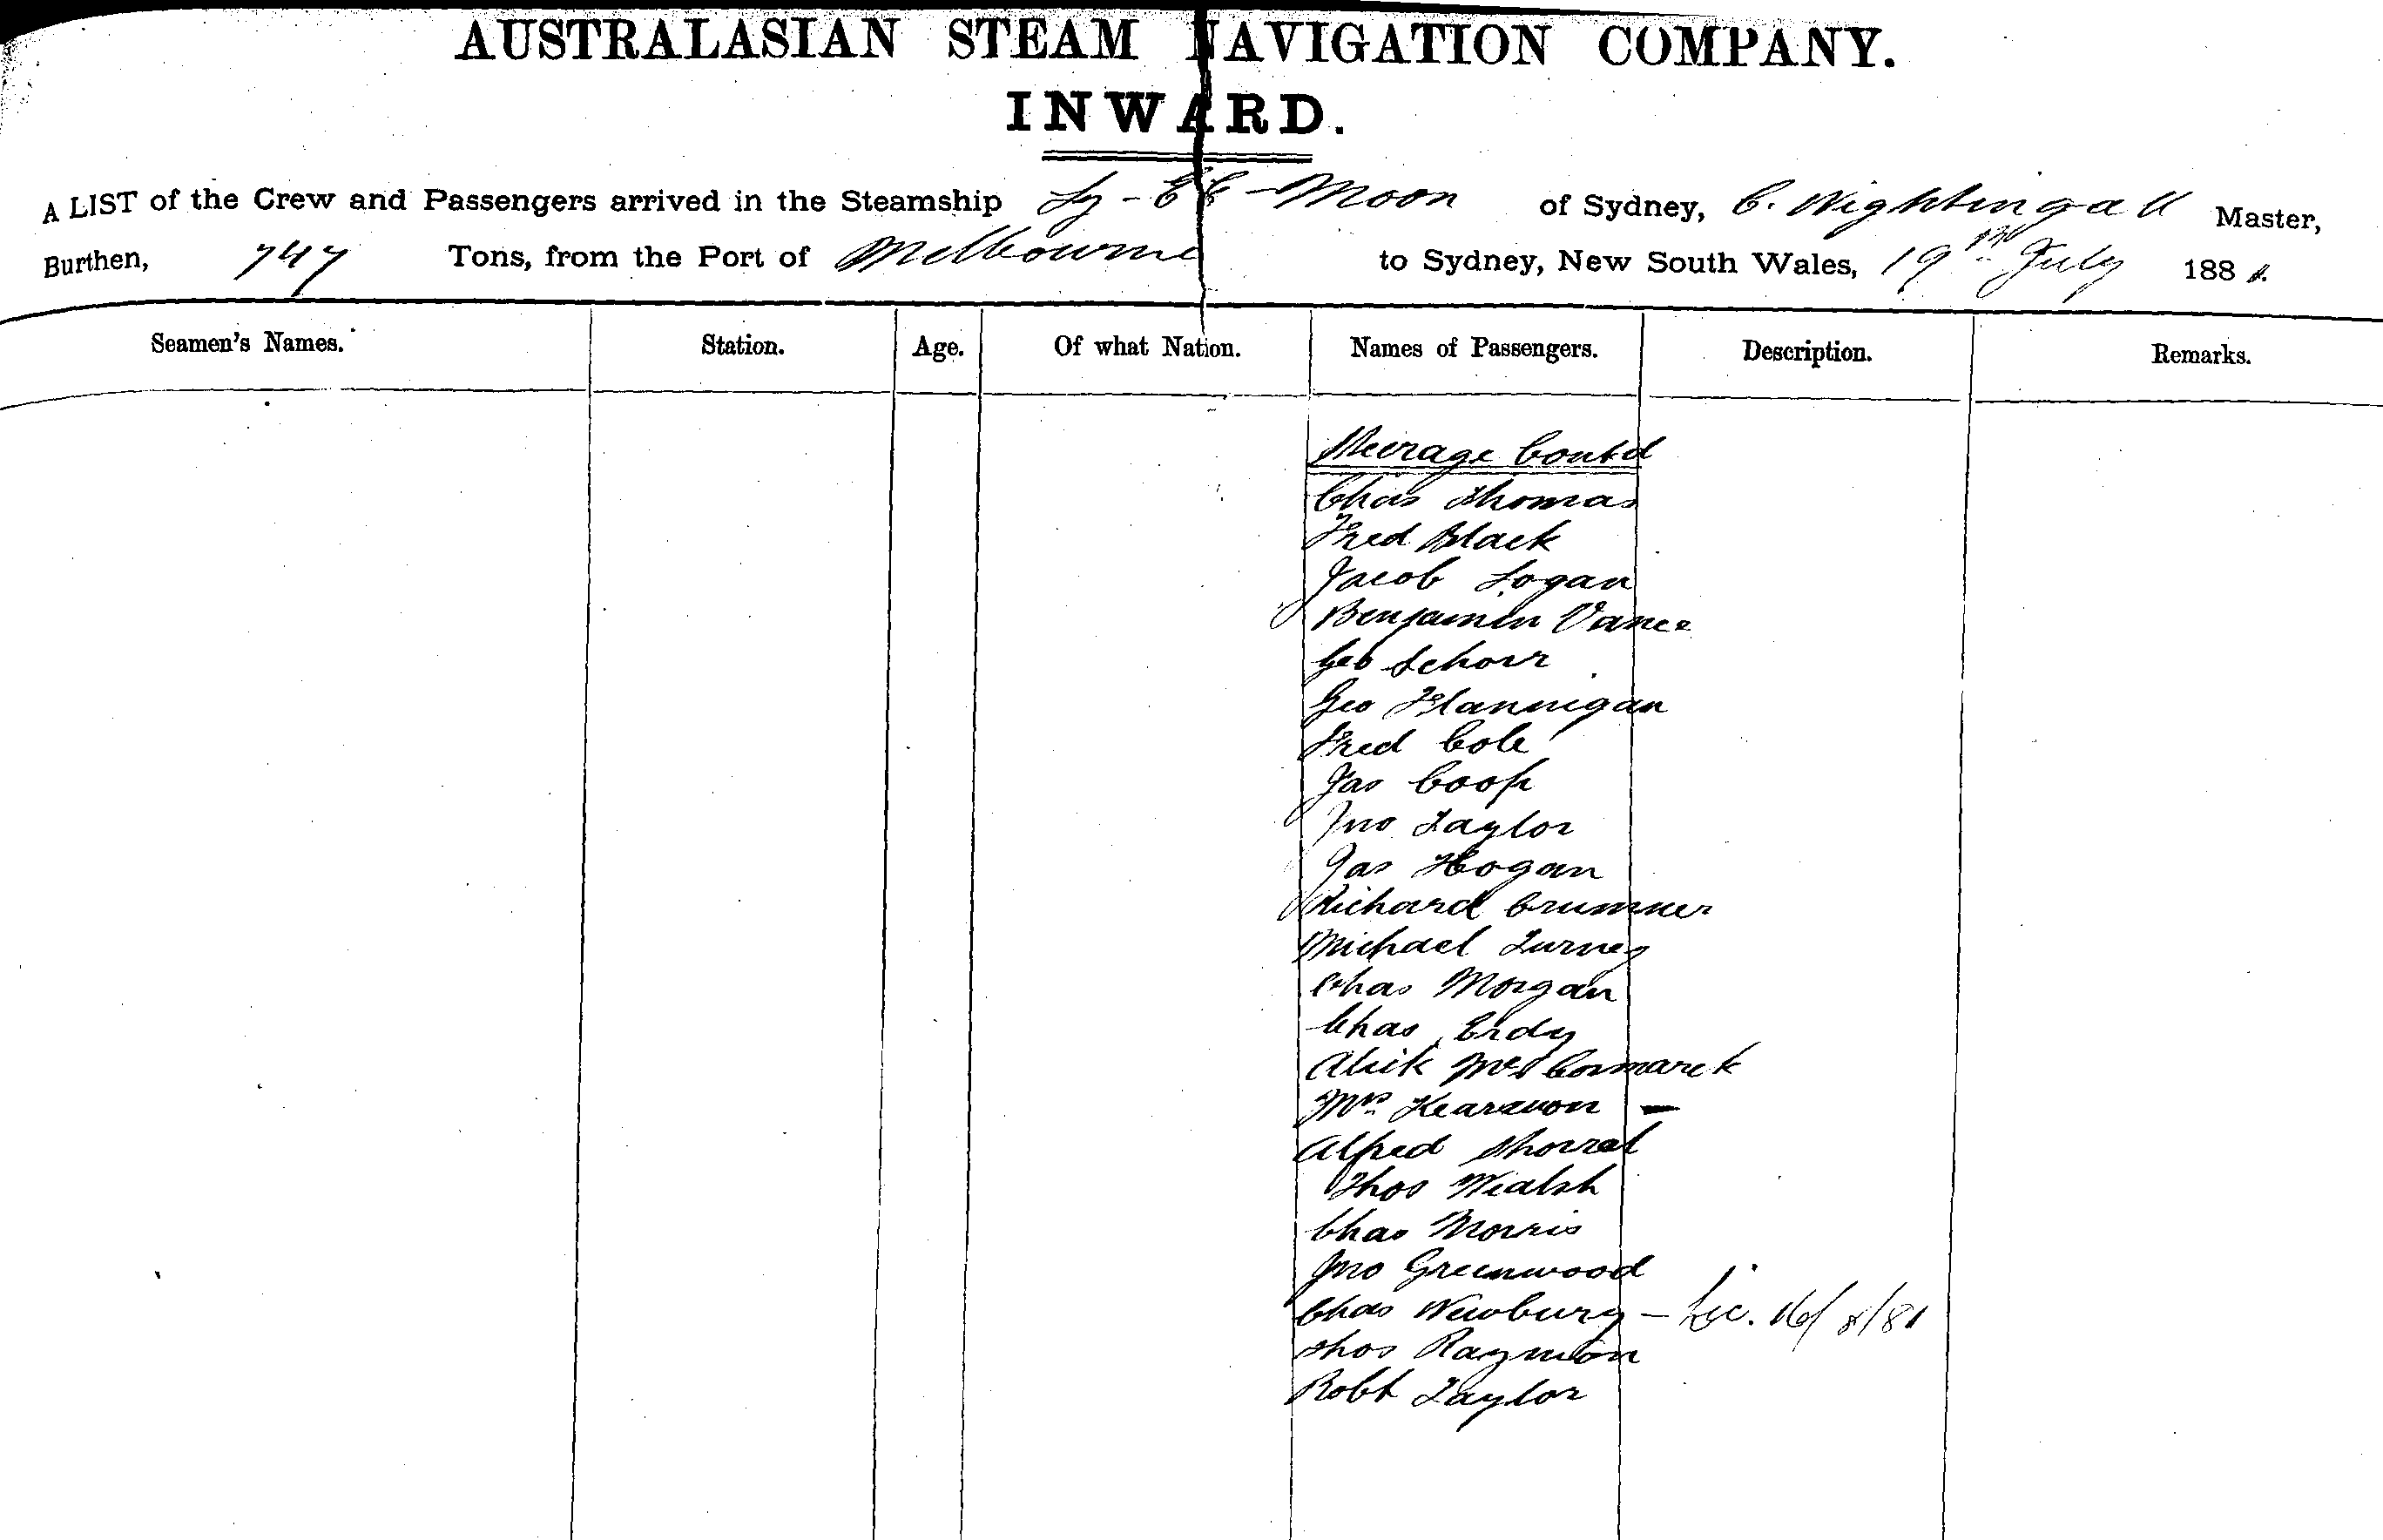 AUSTRALASIAN STEAM NAVIGATION COMPANY.
INWARD.
A LIST of the Crew and Passengers arrived in the Steamship Ly-EE-Moon of Sydney, C. Nightingall Master,
Burthen, 747 Tons, from the Port of Melbourne to Sydney, New South Wales, 19th July 1881
Seamen's Names. Station. Age. Of what Nation. Names of Passengers. Description. Remarks.
Steerage Contd
Chas Thomas
Fred Black
Jacob Logan
Benjamin Vance
Geo Schorr
Geo Flannigan
Fred Cole
Jas Coop
Jno Taylor
Jas Hogan
Richard Crummer
Michael Turney
Chas Morgan
Chas Erdy
Alick McCormarck
Mrs
Alfred
Thos Walsh
Chas Morris
Jno Greenwood
Chas Newbury - Lic. 16/8/81
Thos Raymon
Robt Taylor